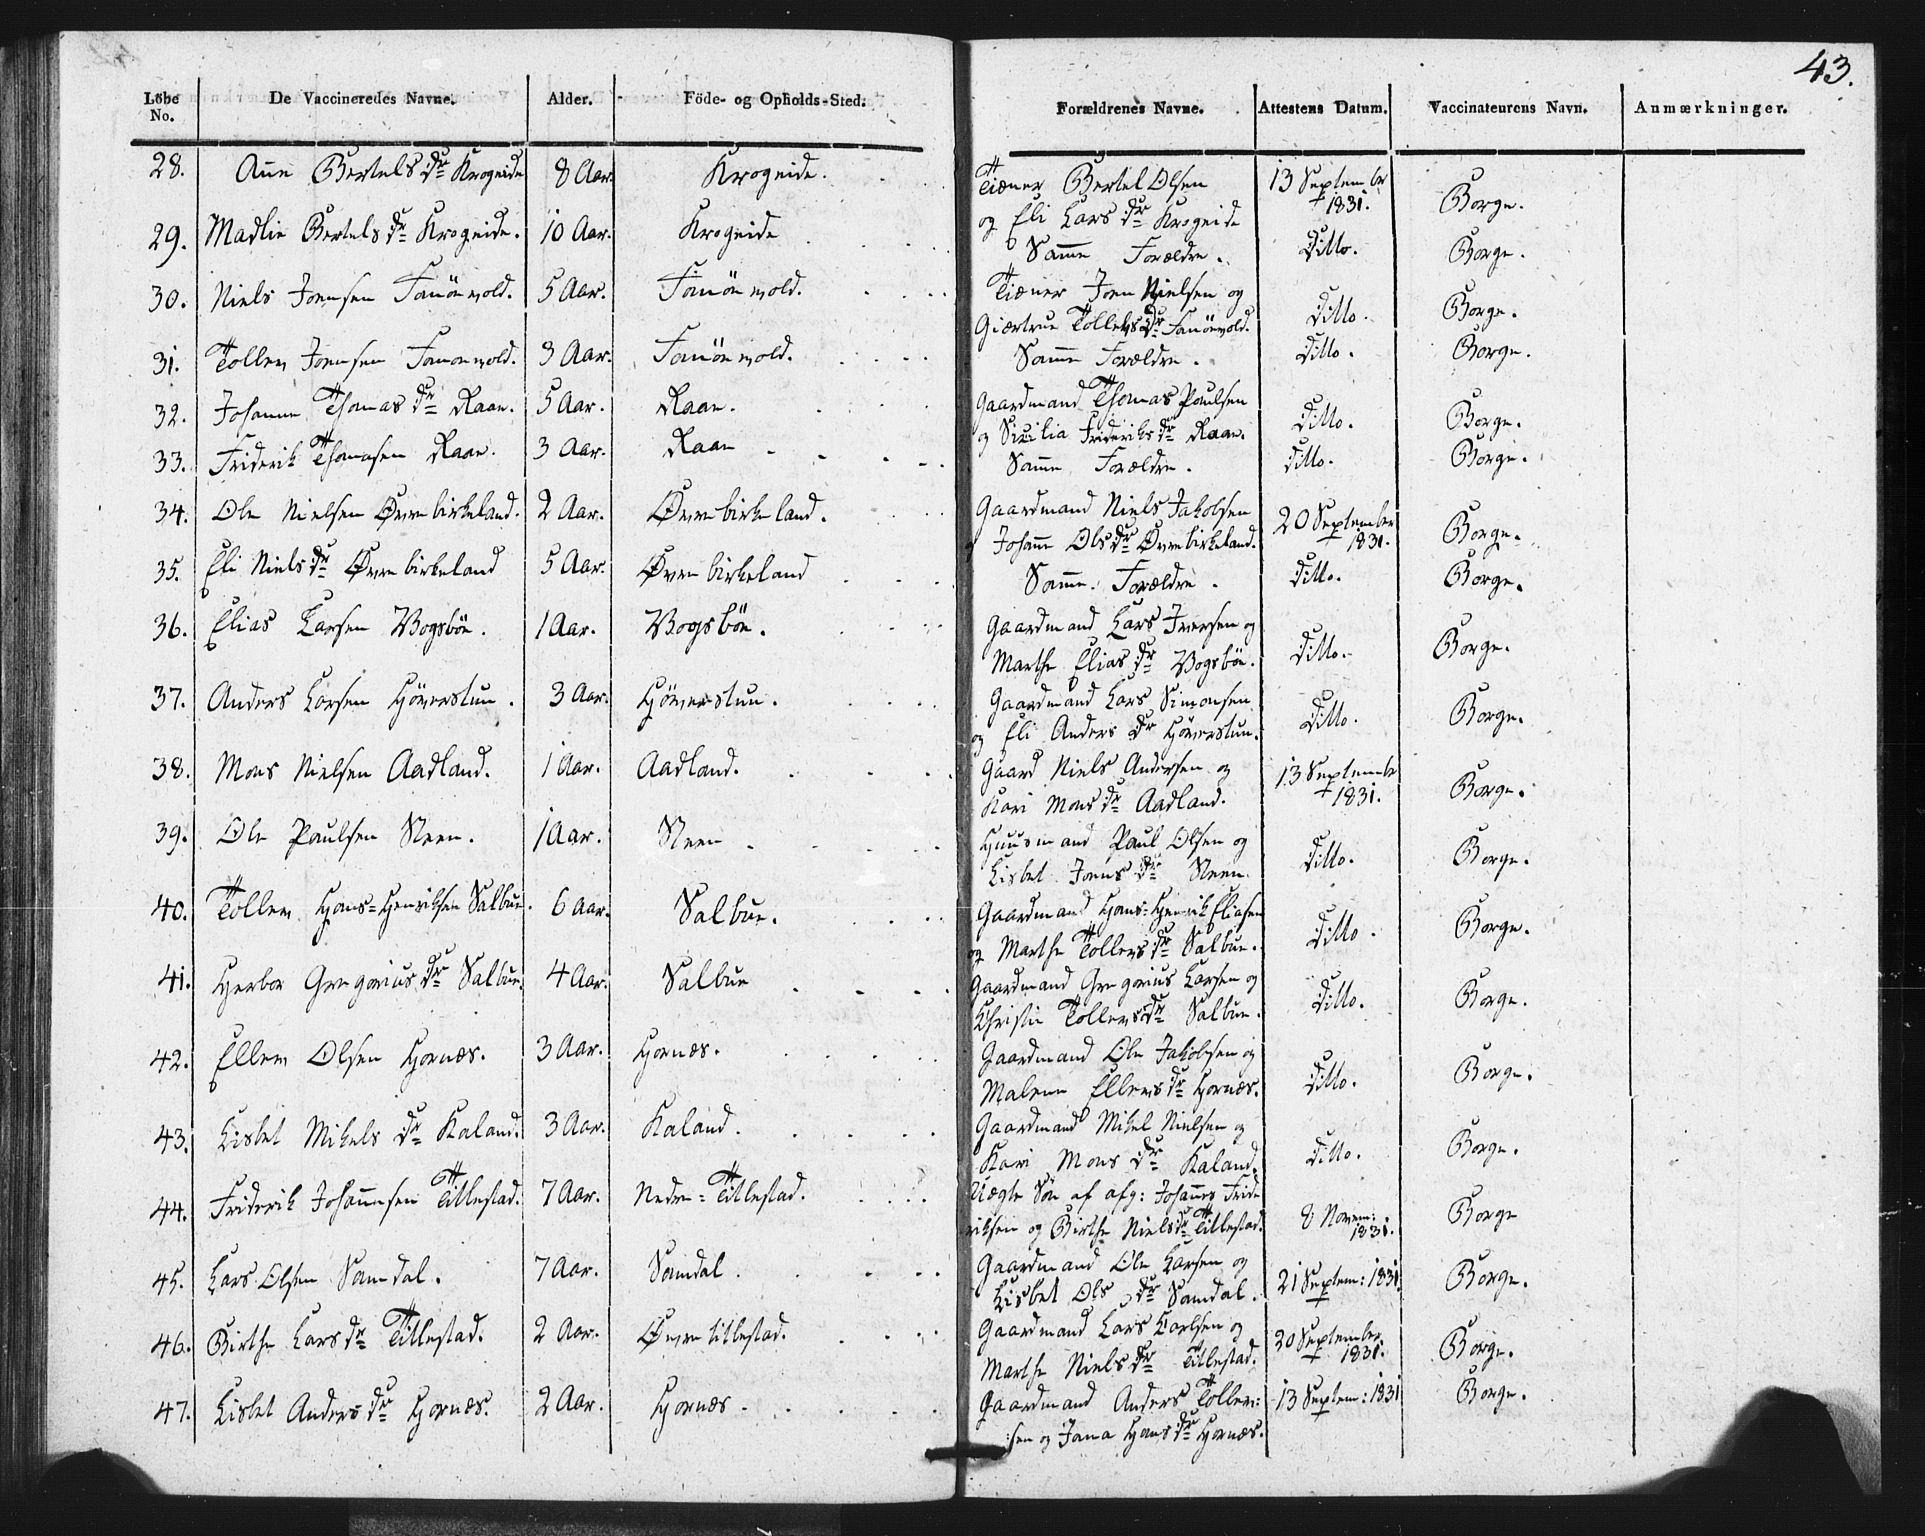 43.
Löbe No. De Vaccineredes Navne. Alder. Föde- og Opholds-Sted. Forældrenes Navne. Attestens Datum. Vaccinateurens Navn. Anmærkninger.
28. Ane Bertels dr Krogeide 8 Aar. Krogeide. Tiener Bertel Olsen 13 Septembr
og Eli Lars dr Krogeide 1831. Borge.
29. Madlie Bertels dr Krogeide. 10 Aar. Krogeide Samme Forældre. Ditto. Borge.
30. Niels Joensen Fanöevold. 5 Aar. Fanöevold. Tiener Joen Nielsen og
Giertrue Tollevs dr Fanöevold. Ditto. Borge.
31. Tollev Joensen Fanöevold. 3 Aar. Fanöevold. Samme Forældre. Ditto. Borge.
32. Johanne Thomas dr Raae. 5 Aar. Raae. Gaardmand Thomas Paulsen
og Sicilia Frideriks dr Raae. Ditto. Borge.
33. Friderik Thomasen Raae. 3 Aar. Raae Samme Forældre. Ditto. Borge.
34. Ole Nielsen Øvrebirkeland. 2 Aar. Øvrebirkeland. Gaardmand Niels Jakobsen 20 September
Johanne Ols dr Øvrebirkeland. 1831. Borge.
35. Eli Niels dr Øvrebirkeland 5 Aar. Øvrebirkeland Samme Forældre. Ditto. Borge.
36. Elias Larsen Vogsböe. 1 Aar. Vogsböe. Gaardmand Lars Iversen og
Marthe Elias dr Vogsböe. Ditto. Borge.
37. Anders Larsen Höverstun. 3 Aar. Höverstun. Gaardmand Lars Simonsen
og Eli Anders dr Höverstun. Ditto. Borge.
38. Mons Nielsen Aadland. 1 Aar. Aadland. Gaard Niels Andersen og 13 Septembr
Kari Mons dr Aadland. 1831. Borge.
39. Ole Paulsen Steen. 1 Aar. Steen Huusmand Paul Olsen og
Lisbet Joens dr Steen. Ditto. Borge.
40. Tollev Hans=Henriksen Salbue. 6 Aar. Salbue. Gaardmand Hans=Henrik Eliasen
og Marthe Tollevs dr Salbue. Ditto. Borge.
41. Herbor Gregorius dr Salbue. 4 Aar. Salbue Gaardmand Gregorius Larsen og
Christie Tollevs dr Salbue. Ditto. Borge.
42. Ellev Olsen Hornæs. 3 Aar. Hornæs. Gaardmand Ole Jakobsen og
Malene Ellevs dr Hornæs. Ditto. Borge.
43. Lisbet Mikels dr Kaland. 3 Aar. Kaland. Gaardmand Mikel Nielsen og
Kari Mons dr Kaland. Ditto. Borge.
44. Friderik Johannesen Titlestad. 7 Aar. Nedre=Titlestad. Uægte Sön af afg: Johannes Fride
riksen og Birthe Niels dr Titlestad. 8 Novem: 1831. Borge
45. Lars Olsen Samdal. 7 Aar. Samdal. Gaardmand Ole Larsen og
Lisbet Ols dr Samdal. 21 Septem: 1831. Borge.
46. Birthe Lars dr Titlestad. 2 Aar. Øvretitlestad. Gaardmand Lars Carlsen og 20 September
Marthe Niels dr Titlestad. 1831. Borge.
47. Lisbet Anders dr Hornæs. 2 Aar. Hornæs. Gaardmand Anders Tollev: 13 Septem: 1831 Borge.
sen og Jana Hans dr Hornæs.